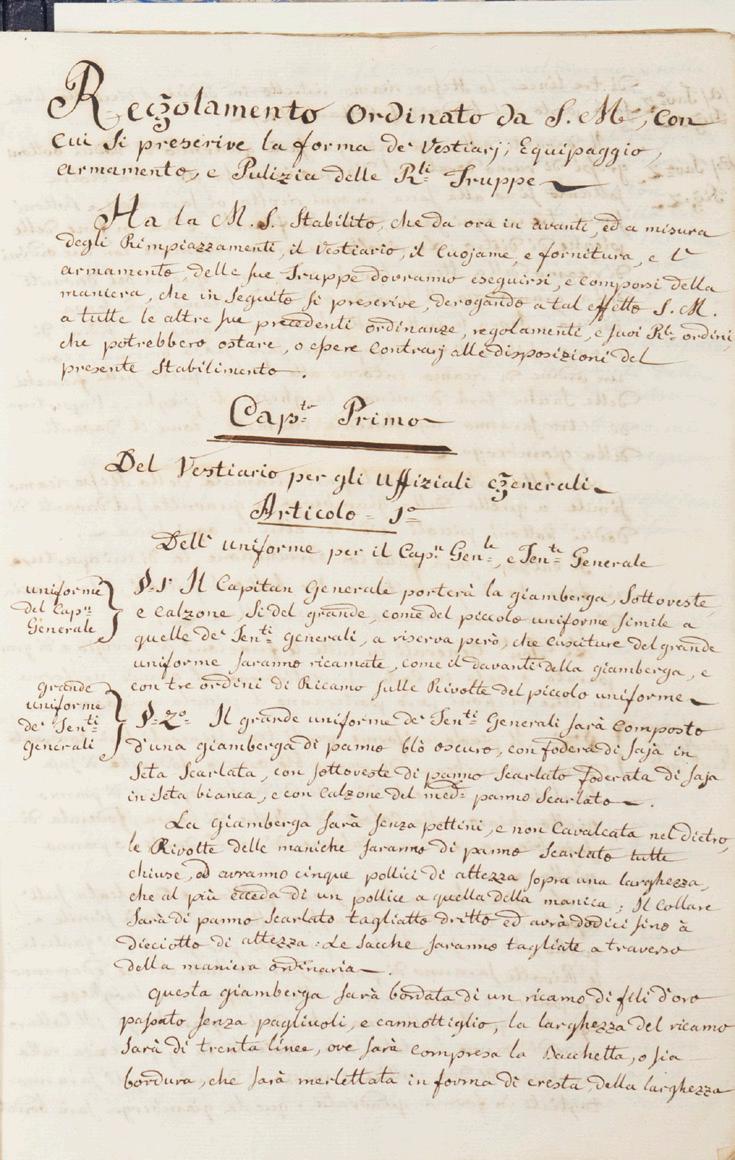 Regolamento Ordinato da S. M., con
cui si prescrive la forma de' Vestiarj, Equipaggio,
armamento, e Pulizia delle Rli. Truppe
Ha la M. S. Stabilito, che da ora in avanti, ed a misura
degli Rimpiazzamenti, il Vestiario, il Cuojame, e fornitura, e l'
armamento, delle sue Truppe dovranno eseguirsi, e comporsi della
maniera, che in seguito si prescrive, derogando a tal effetto S. M.
a tutte le altre sue precedenti ordinanze, regolamenti, e suoi Rli. ordini,
che potrebbero ostare, o essere contrarj alle disposizioni del
presente Stabilimento.
Capto. Primo
Del Vestiario per gli Uffiziali Generali
Articolo 1o
Dell' uniforme per il Capn. Genle., e Tente. Generale
uniforme
del Capn.
Generale
§. 1o Il Capitan Generale porterà la giamberga, Sottoveste,
e Calzone, sì del grande, come del piccolo uniforme simile a
quelle de' Tenti. Generali, a riserva però, che cuciture del grande
uniforme saranno ricamate, come il davanti della giamberga, e
con tre ordini di Ricamo sulle Rivolte del piccolo uniforme
grande
uniforme
de' Tenti.
Generali
§. 2o Il grande uniforme de' Tenti. Generali sarà Composto
d'una giamberga di panno blò oscuro, con fodera di saja in
Seta Scarlata, con sottoveste di panno Scarlato foderata di saja
in seta bianca, e con calzone del medo. panno Scarlato.
La giamberga sarà senza pettini, e non Cavalcata nel dietro,
le Rivolte delle maniche saranno di panno Scarlato tutte
chiuse, ed avranno cinque pollici di altezza sopra una larghezza,
che al più ecceda di un pollice a quella della manica; Il Collare
sarà di panno Scarlato tagliatto dritto ed avrà dodici sino à
dieciotto di altezza: Le sacche saranno tagliate a traverso
della maniera ordinaria.
Questa giamberga sarà bordata di un ricamo di fili d'oro
passato senza pagliuoli, e cannottiglio, la larghezza del ricamo
sarà di trenta linee, ove sarà compresa la Bacchetta, o sia
bordura, che sarà merlettata in forma di cresta della larghezza